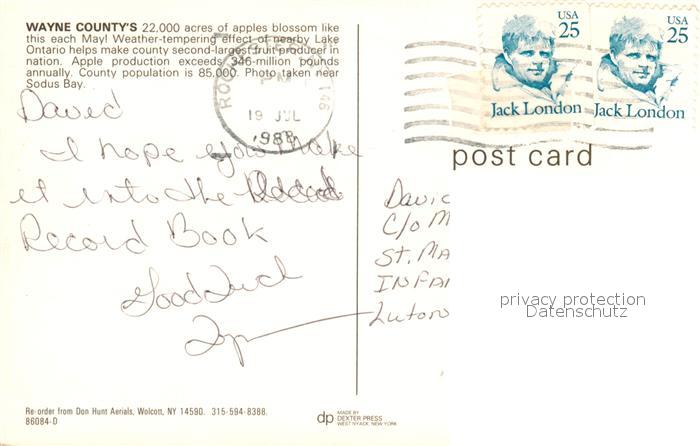 WAYNE COUNTY'S 22,000 acres of apples blossom like
this each May! Weather-tempering effect of nearby Lake
Ontario helps make county second-largest fruit producer in
nation. Apple production exceeds 346-million pounds
annually. County population is 85,000. Photo taken near
Sodus Bay.
19 JUL
1988
USA
25
Jack London
USA
25
Jack London
post card
David
I hope you make
it into the
Record Book
Good Luck
David
C/O M
St. MA
INFAN
Luton
privacy protection
Datenschutz
Re-order from Don Hunt Aerials, Wolcott, NY 14590. 315-594-8388.
86084-D
dp MADE BY
DEXTER PRESS
WEST NYACK, NEW YORK